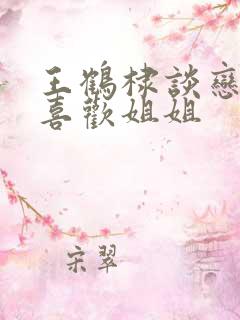 王鶴棣談戀
喜歡姐姐
宋翠